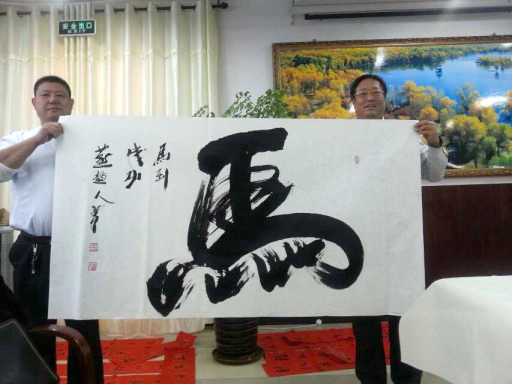 安全出口
馬
馬到
成功
燕趙人